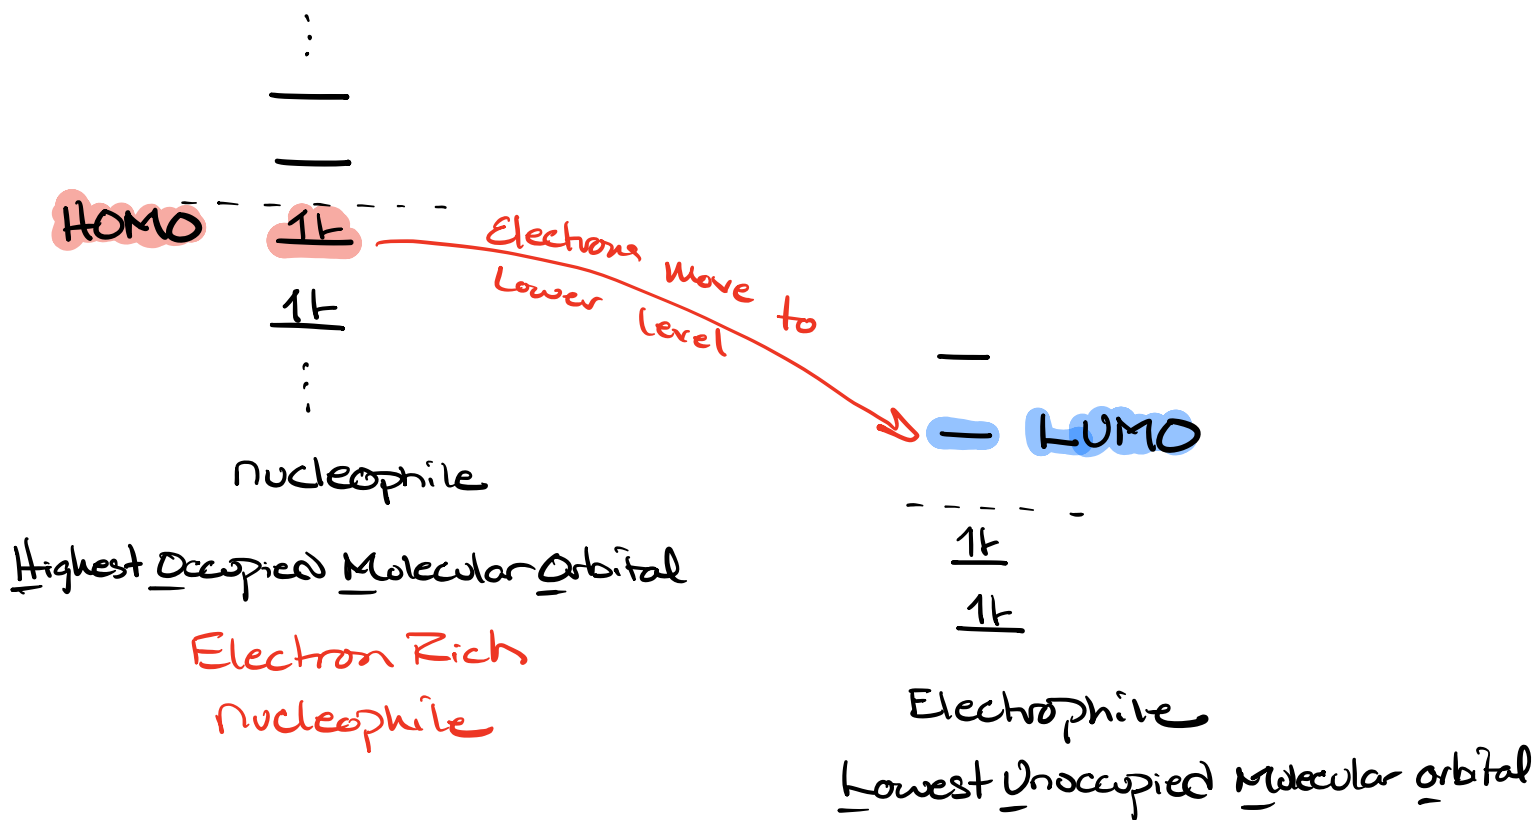 HOMO
Electrons move to
Lower level
LUMO
nucleophile
Highest Occupied Molecular Orbital
Electron Rich
nucleophile
Electrophile
Lowest Unoccupied Molecular orbital